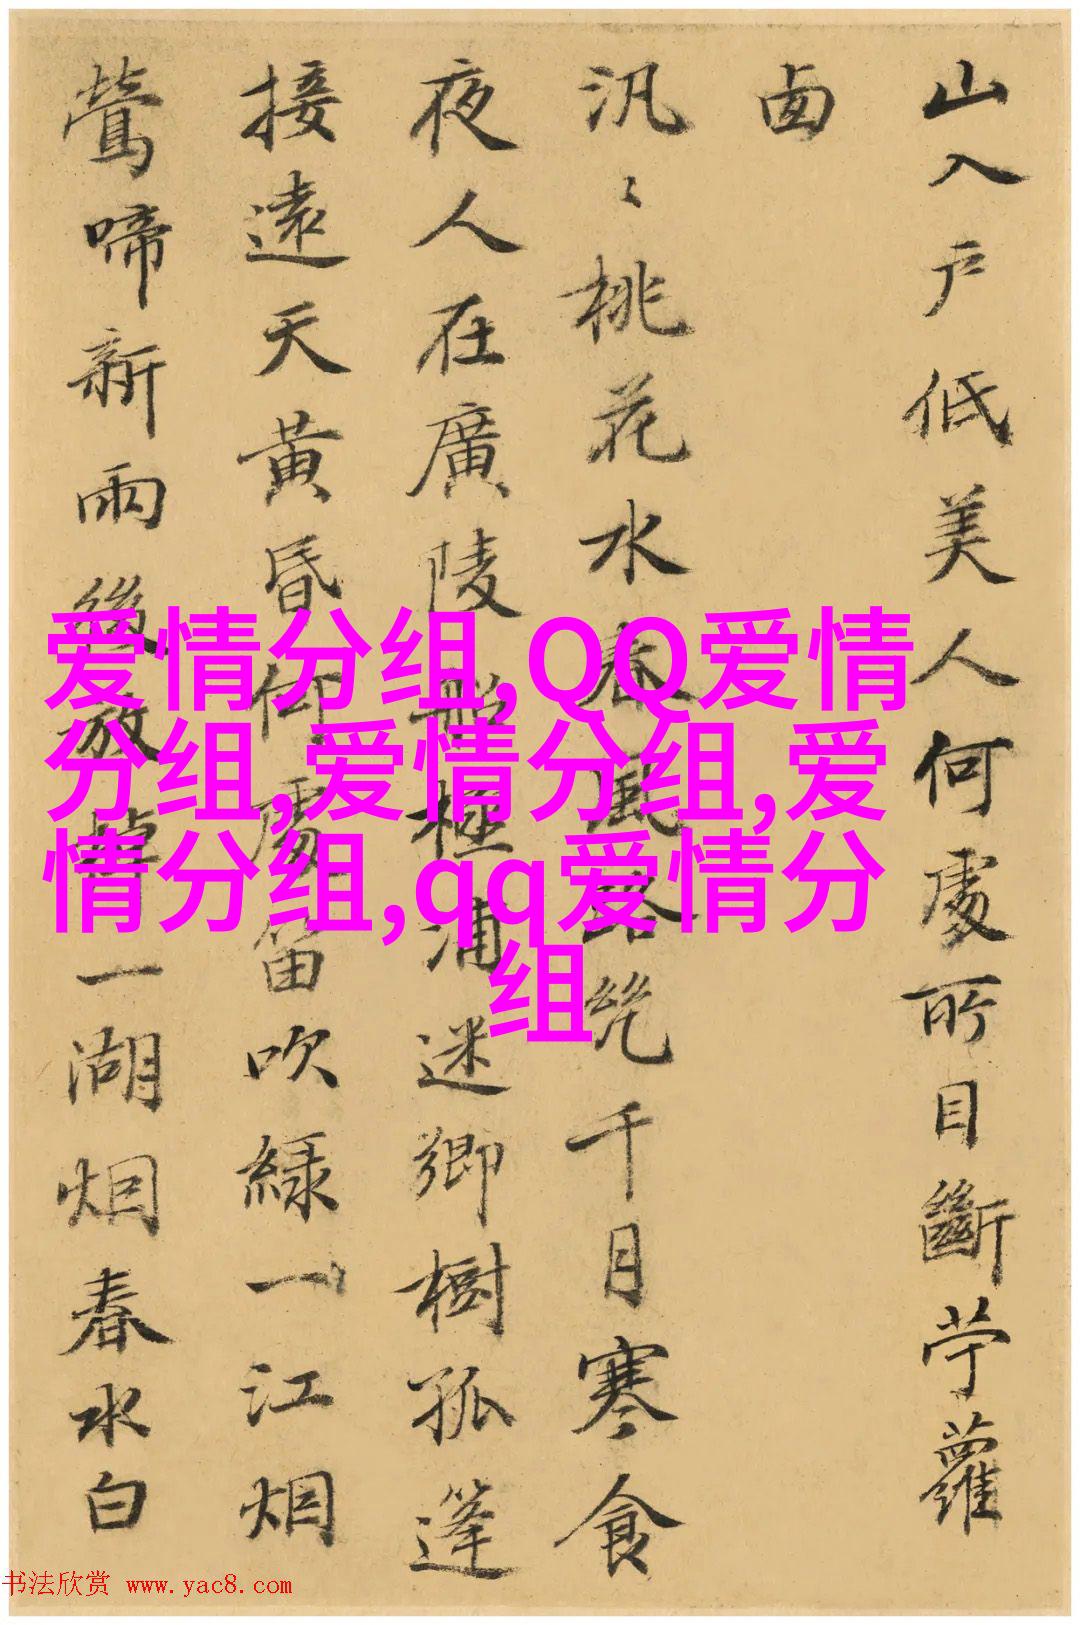 山入户低美人何處所目斷苧蘿
汎〻桃花水春風路幾千月寒食
夜人在廣陵船極浦迷鄉樹孤篷
接遠天黃昏仰處笛吹綠一江烟
鶯啼新雨後放棹一湖烟春水白
爱情分组,QQ爱情
分组,爱情分组,爱
情分组,qq爱情分
组
书法欣赏 www.yac8.com